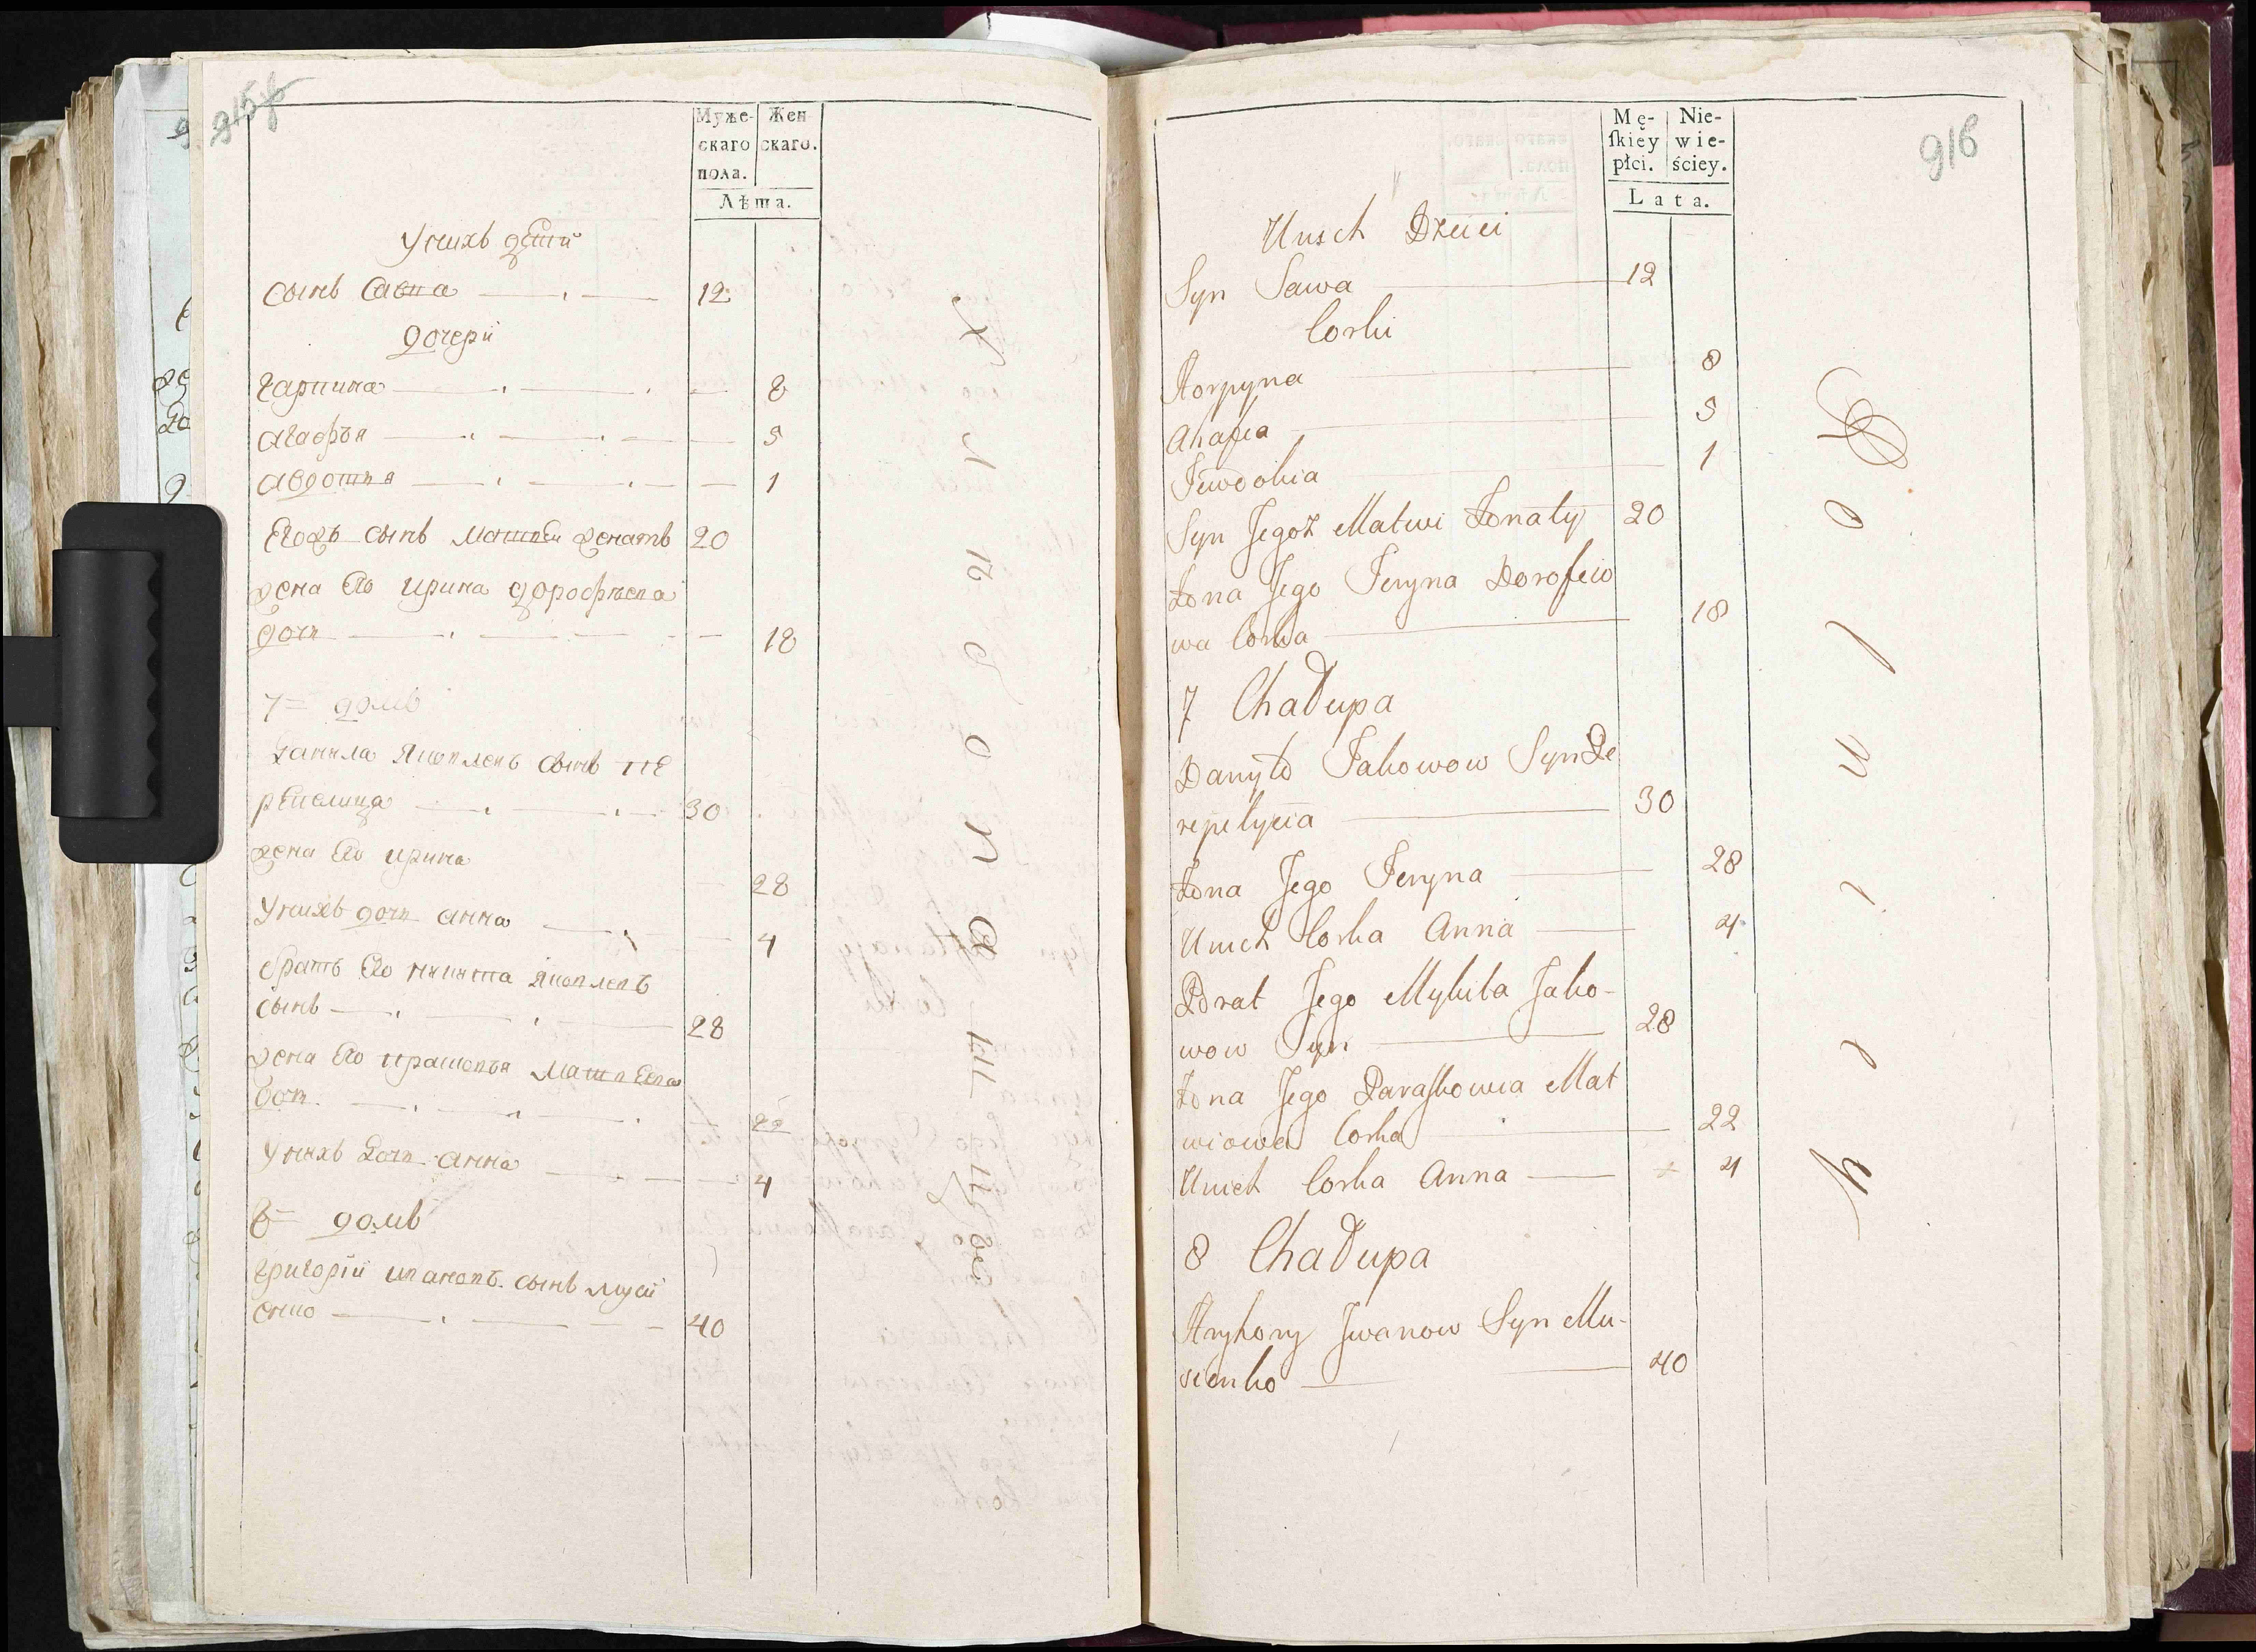 915
Муже-
скаго
пола.
Жен
скаго.
Лѣта.
У нихъ дѣти
сынъ Савва 12
дочери
гарпина 8
агафья 5
авдотья 1
Егожъ сынъ матвей женатъ 20
жена Его ирина дорофѣева
дочь 18
7 домъ
данила яковлевъ сынъ пе
репелица 30
жена Его ирина 28
У нихъ дочь анна 4
братъ Его никита яковлевъ
сынъ 28
жена Его прасковья матвеева
дочь 22
У нихъ дочь анна 4
8 домъ
григорій ивановъ сынъ муси
енко 40
916
Mę-
skiey
płci.
Nie-
wie-
ściey.
Lata.
Unich Dzieci
Syn Sawa 12
Corki
Horpyna 8
Ahafia 5
Jewdokia 1
Syn Jegoż Matwi Żonaty 20
Żona Jego Jeryna Dorofeio
wa Corka 18
7 Chałupa
Danyło Jakowow Syn Pe
repełycia 30
Żona Jego Jeryna 28
Unich Corka Anna 4
Brat Jego Mykita Jako-
wow Syn 28
Żona Jego Paraskowia Mat
wiowa Corka 22
Unich Corka Anna 4
8 Chałupa
Hryhory Jwanow Syn Mu-
sienko 40